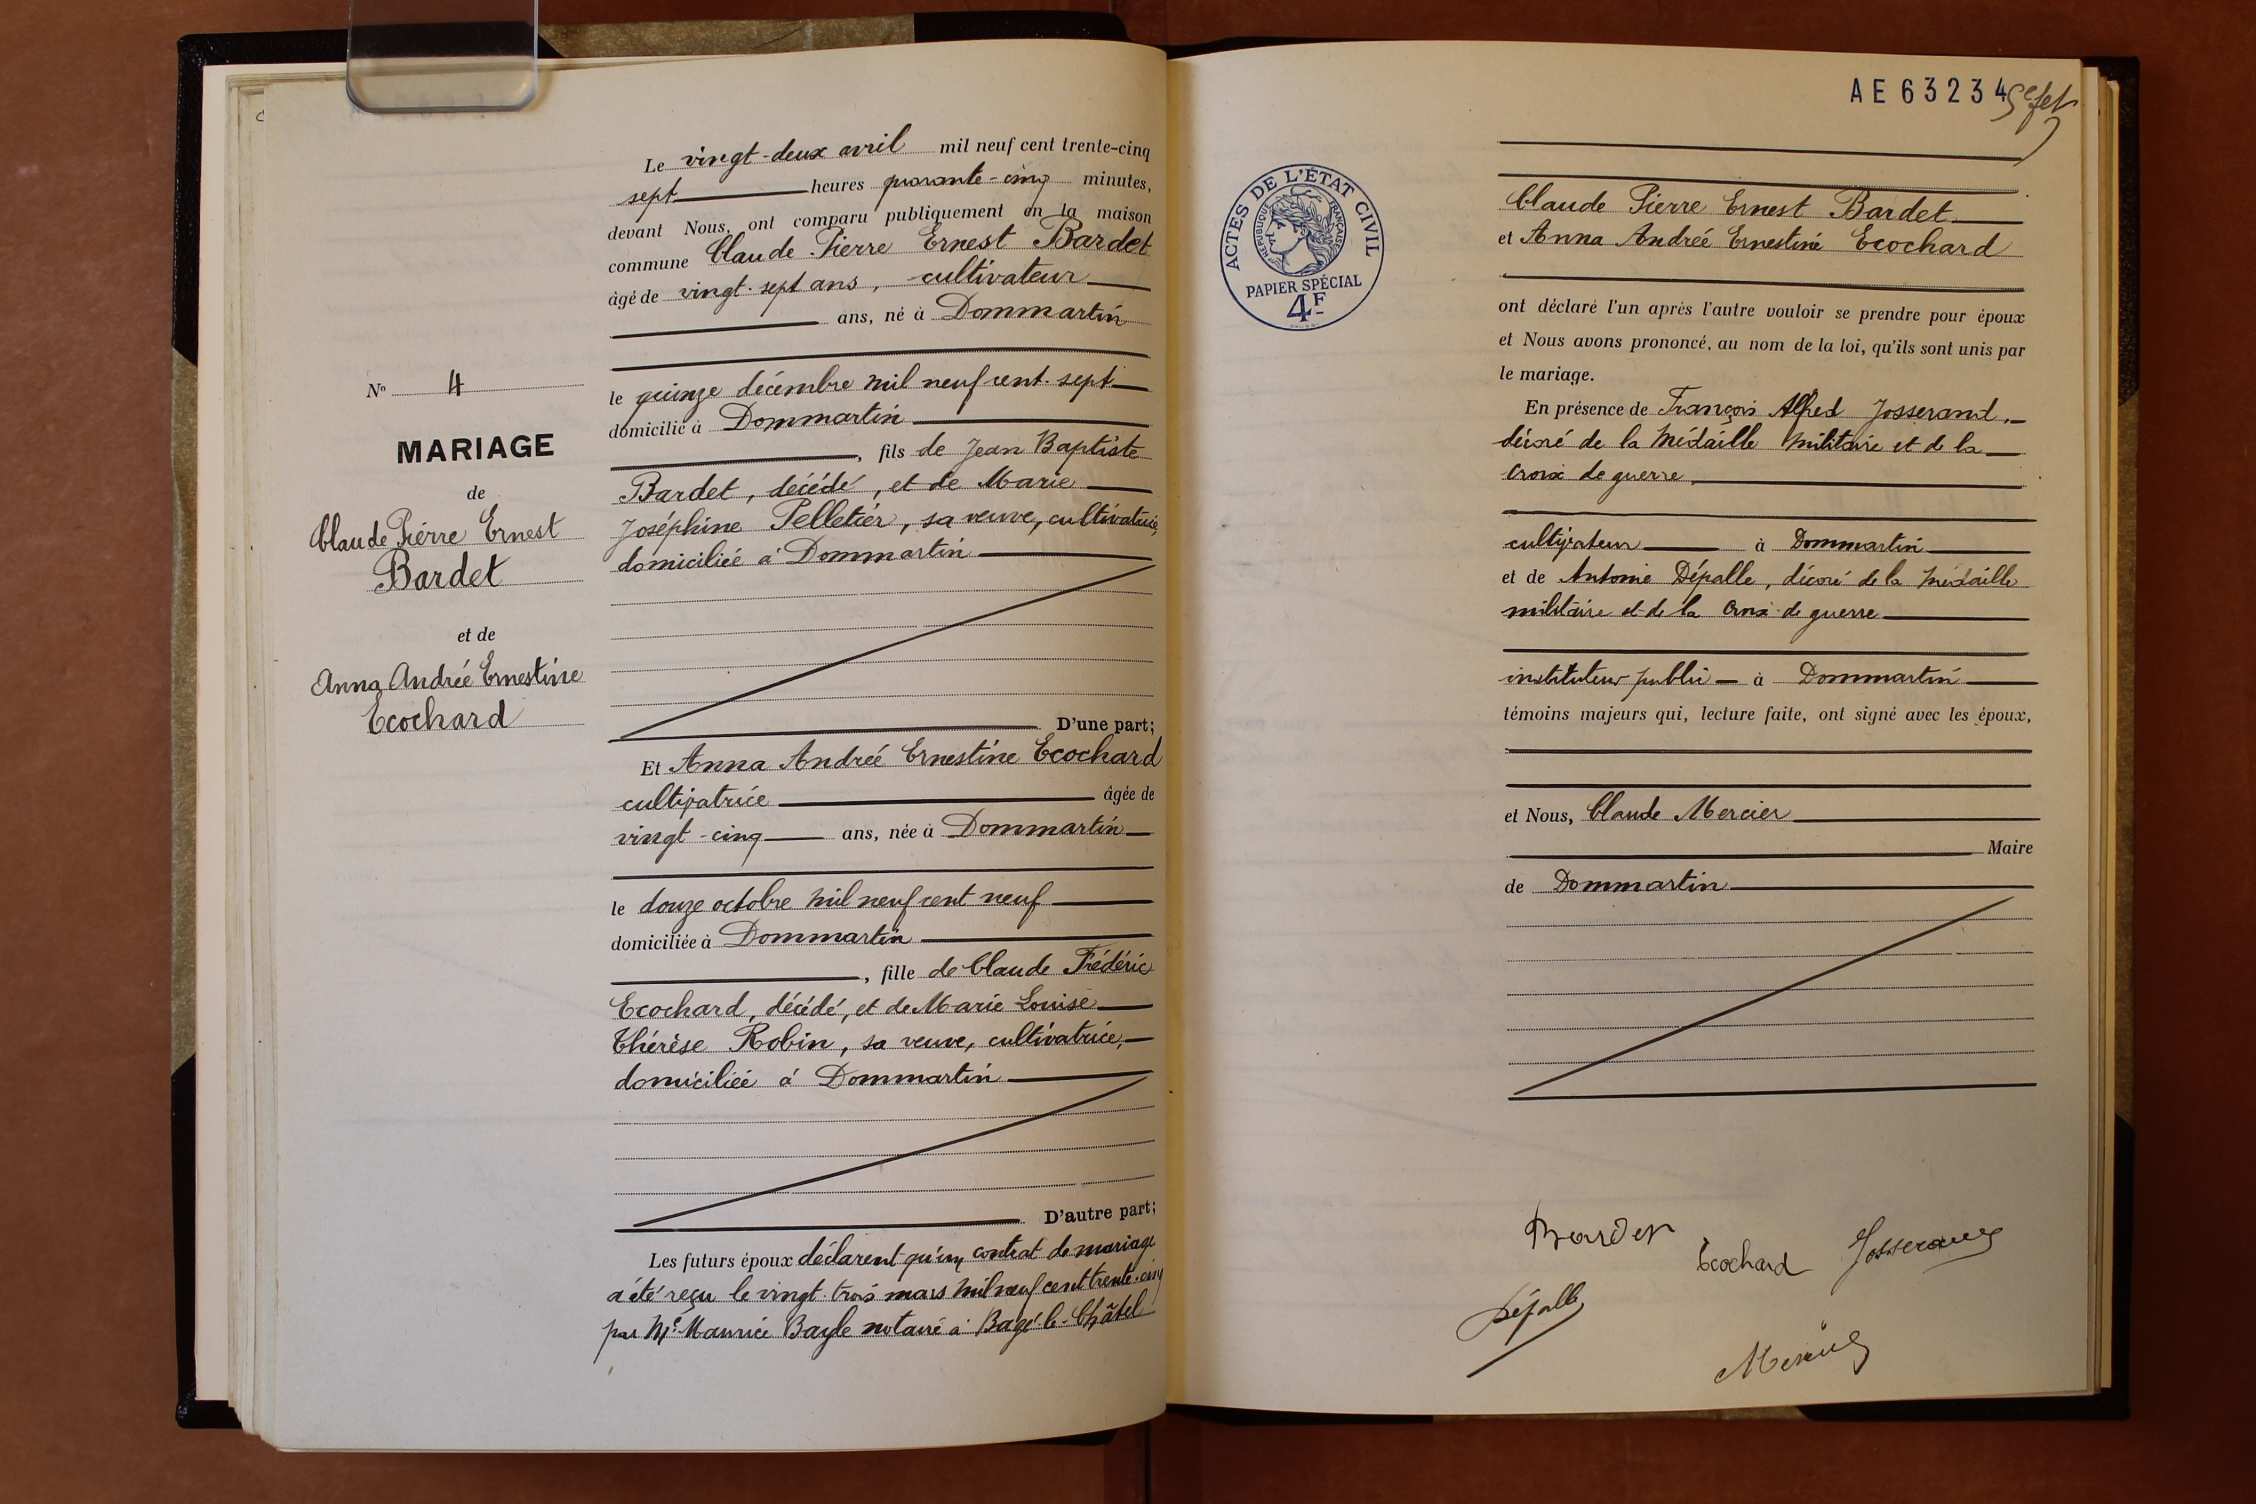 Nº 4
MARIAGE
de
Claude Pierre Ernest
Bardet
et de
Anna Andrée Ernestine
Ecochard
Le vingt-deux avril mil neuf cent trente-cinq
sept heures quarante-cinq minutes,
devant Nous, ont comparu publiquement en la maison
commune Claude Pierre Ernest Bardet
âgé de vingt-sept ans, cultivateur
ans, né à Dommartin
le quinze décembre mil neuf cent sept
domicilié à Dommartin
, fils de Jean Baptiste
Bardet, décédé, et de Marie
Joséphine Pelletier, sa veuve, cultivatrice,
domiciliée à Dommartin
D'une part;
Et Anna Andrée Ernestine Ecochard
cultivatrice âgée de
vingt-cinq ans, née à Dommartin
le douze octobre mil neuf cent neuf
domiciliée à Dommartin
, fille de Claude Frédéric
Ecochard, décédé, et de Marie Louise
Thérèse Robin, sa veuve, cultivatrice,
domiciliée à Dommartin
D'autre part;
Les futurs époux déclarent qu'un contrat de mariage
a été reçu le vingt trois mars mil neuf cent trente-cinq
par Me Maurice Bayle notaire à Bagé-le-Châtel
AE 63234
ACTES DE L'ÉTAT CIVIL
RÉPUBLIQUE FRANÇAISE
PAPIER SPÉCIAL
4F
Claude Pierre Ernest Bardet
et Anna Andrée Ernestine Ecochard
ont déclaré l'un après l'autre vouloir se prendre pour époux
et Nous avons prononcé, au nom de la loi, qu'ils sont unis par
le mariage.
En présence de François Alfred Josserand,
décoré de la Médaille Militaire et de la
croix de guerre,
cultivateur à Dommartin
et de Antoine Dépalle, décoré de la Médaille
militaire et de la Croix de guerre
instituteur public à Dommartin
témoins majeurs qui, lecture faite, ont signé avec les époux,
et Nous, Claude Mercier
Maire
de Dommartin
Bardet
Ecochard
Josserand
Dépalle
Mercier